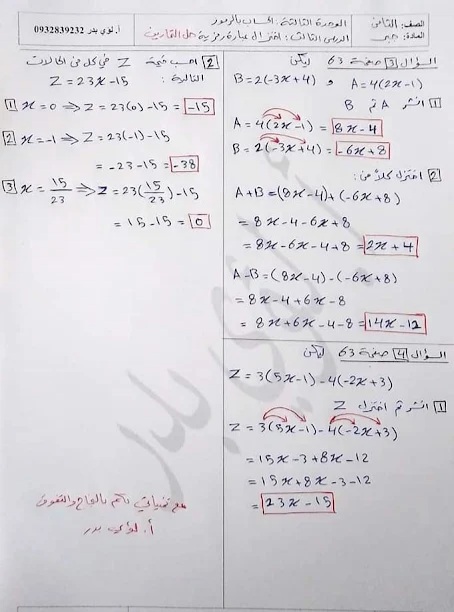 الصف: الثامن
المادة: جبر
الوحدة الثالثة: الحساب بالرموز
الدرس الثالث: اختزال عبارة رمزية حل التمارين
أ. لؤي بدر
0932839232
السؤال 3 صفحة 63 ليكن
A=4(2x-1) و B=2(-3x+4)
1 انشر A ثم B
A=4(2x-1)=8x-4
B=2(-3x+4)=-6x+8
2 اختزل كلاً من:
A+B=(8x-4)+(-6x+8)
=8x-4-6x+8
=8x-6x-4+8=2x+4
A-B=(8x-4)-(-6x+8)
=8x-4+6x-8
=8x+6x-4-8=14x-12
السؤال 4 صفحة 63 ليكن
Z=3(5x-1)-4(-2x+3)
1 انشر ثم اختزل Z
Z=3(5x-1)-4(-2x+3)
=15x-3+8x-12
=15x+8x-3-12
=23x-15
2 احسب قيمة Z في كل من الحالات
التالية: Z=23x-15
1 x=0 ⇒ Z=23(0)-15=-15
2 x=-1 ⇒ Z=23(-1)-15
=-23-15=-38
3 x=15/23 ⇒ Z=23(15/23)-15
=15-15=0
مع تمنياتي لكم بالنجاح والتفوق
أ. لؤي بدر
أ. لؤي بدر